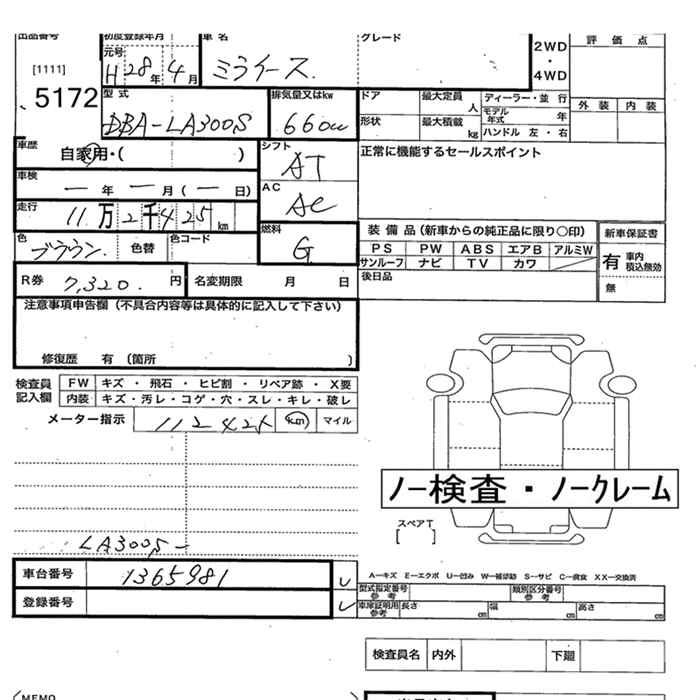 出品番号 初度登録年月 車名 グレード
[1111] 元号 H 28 年 4 月 ミライース 2WD・4WD 評価点
5172 型式 DBA-LA300S 排気量又はkw 660cc
ドア 最大定員 人 ディーラー・並行 外装 内装
形状 最大積載 kg モデル年式 年
ハンドル 左・右
車歴 自家用・( ) シフト AT 正常に機能するセールスポイント
車検 ― 年 ― 月(― 日) AC AC
走行 11万2千425km 燃料 G 装備品(新車からの純正品に限り○印) 新車保証書
色 ブラウン 色替 色コード PS PW ABS エアB アルミW 有 車内積込無効
サンルーフ ナビ TV カワ 無
R券 7,320 円 名変期限 月 日 後日品
注意事項申告欄(不具合内容等は具体的に記入して下さい)
修復歴 有(箇所 )
検査員記入欄 FW キズ・飛石・ヒビ割・リペア跡・X要
内装 キズ・汚レ・コゲ・穴・スレ・キレ・破レ
メーター指示 112425 km マイル
ノー検査・ノークレーム
スペアT
[ ]
LA300S-
車台番号 1365981 レ
登録番号 レ
A―キズ E―エクボ U―凹み W―補修跡 S―サビ C―腐食 XX―交換済
型式指定番号参考 類別区分番号参考
車庫証明用参考 長さ cm 幅 cm 高さ cm
検査員名 内外 下廻
MEMO